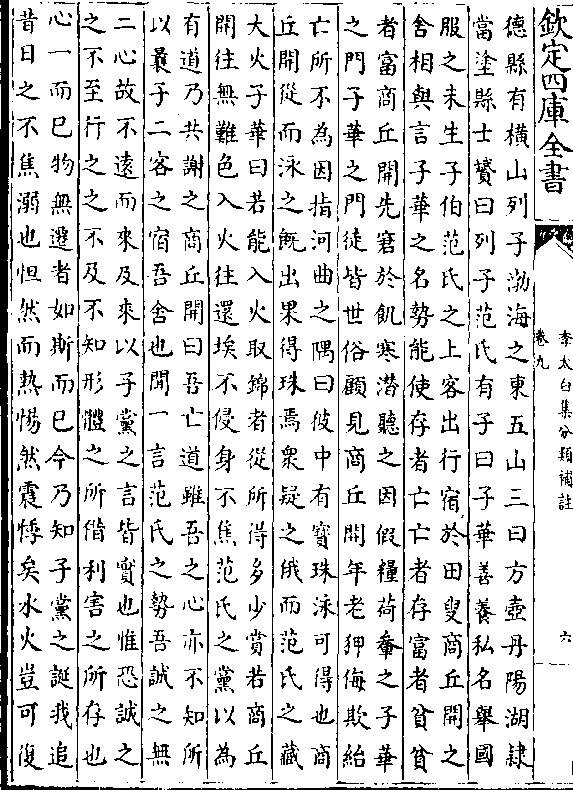 欽定四庫全書
李太白集分類補註
卷九
六
德縣有橫山列子渤海之東五山三曰方壺丹陽湖隷
當塗縣士贇曰列子范氏有子曰子華善養私名舉國
服之未生子伯范氏之上客出行宿於田叟商丘開之
舍相與言子華之名勢能使存者亡亡者存富者貧貧
者富商丘開先窘於飢寒潛聽之因假糧荷畚之子華
之門子華之門徒皆世俗顧見商丘開年老狎侮欺紿
亡所不為因指河曲之隅曰彼中有寶珠泳可得也商
丘開從而泳之旣出果得珠焉衆疑之俄而范氏之藏
大火子華曰若能入火取錦者從所得多少賞若商丘
開往無難色入火往還埃不侵身不焦范氏之黨以為
有道乃共謝之商丘開曰吾亡道雖吾之心亦不知所
以曩子二客之宿吾舍也聞一言范氏之勢吾誠之無
二心故不遠而來及來以子黨之言皆實也惟恐誠之
之不至行之之不及不知形體之所偕利害之所存也
心一而已物無迕者如斯而已今乃知子黨之誕我追
昔日之不焦溺也怛然而熱惕然震悸矣水火豈可復